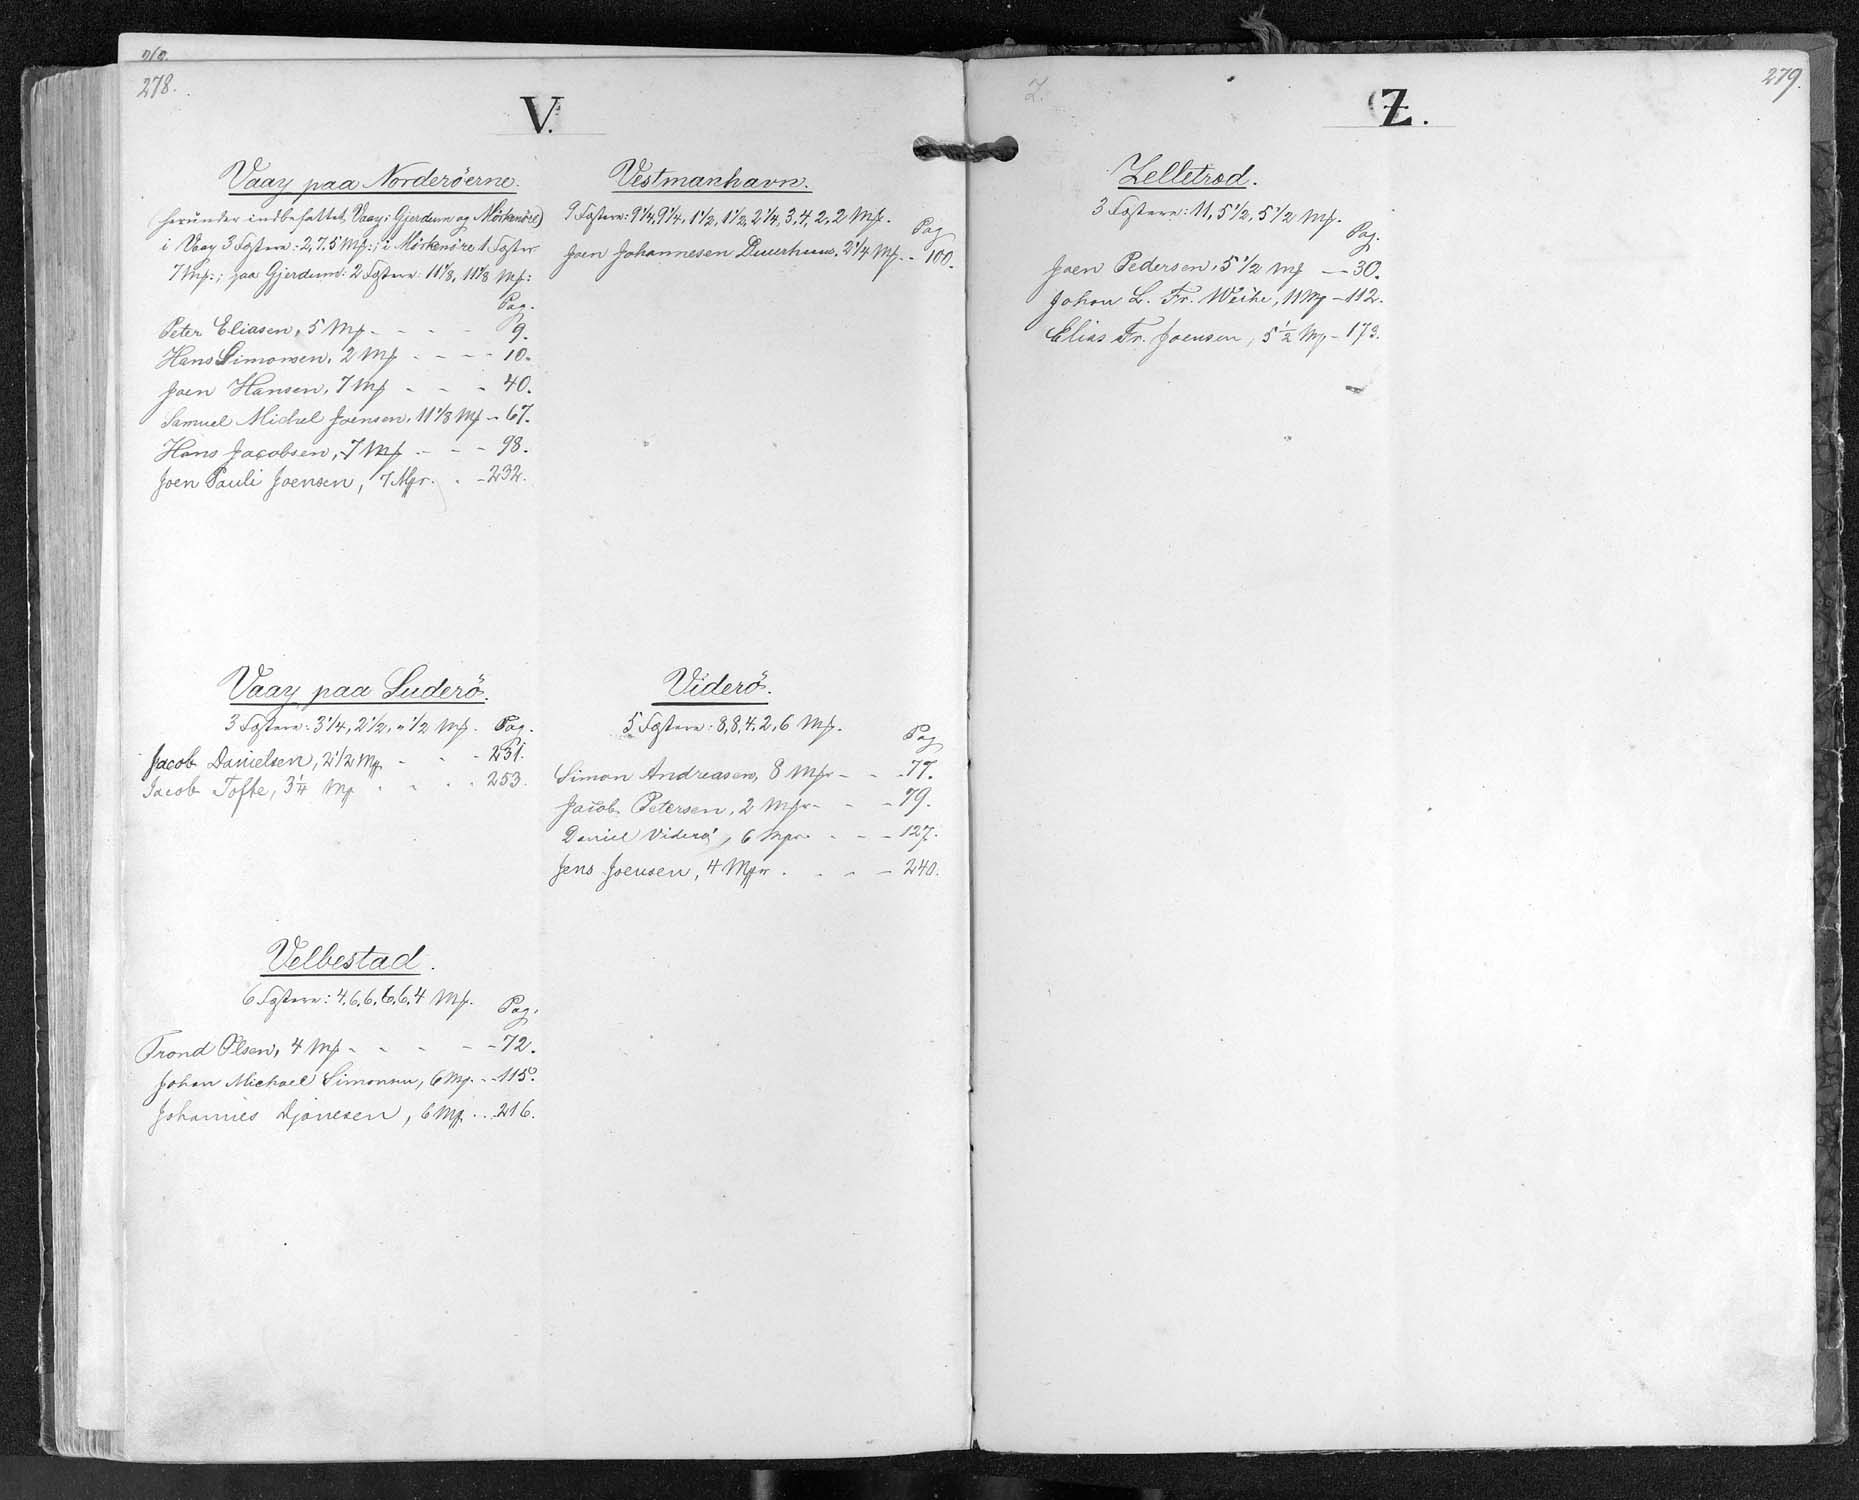 278.
V.
Vaay paa Norderöerne.
(herunder indbefattet Vaay; Gjerdum og Mörkenöre)
i Vaay 3 Fæstere: 2, 7, 5 Mk:; i Mörkenöre 1 Fæster
7 Mk:; paa Gjerdum: 2 Fæstere: 11 1/8, 11 1/8 Mk:
Pag.
Peter Eliasen, 5 Mk - - - - 9.
Hans Simonsen, 2 Mk - - - - 10.
Joen Hansen, 7 Mk - - - 40.
Samuel Michel Joensen, 11 1/8 Mk - 67.
Hans Jacobsen, 7 Mk - - - 98.
Joen Pauli Joensen, 7 Mkr. - - 232.
Vaay paa Suderö.
3 Fæstere: 3 1/4, 2 1/2, " 1/2 Mk. Pag.
Jacob Danielsen, 2 1/2 Mk - - - 231.
Jacob Tofte, 3 1/4 Mk - - - - 253.
Velbestad.
6 Fæstere: 4, 6, 6, 6, 6, 4 Mk.
Pag.
Trond Olsen, 4 Mk - - - - - 72.
Johan Michael Simonsen, 6 Mk. - - 115.
Johannes Djonesen, 6 Mk. - - 216.
Vestmanhavn.
9 Fæstere: 9 1/4, 9 1/4, 1 1/2, 1 1/2, 2 1/4, 3, 4, 2, 2 Mk.
Pag
Joen Johannesen Duurhuus, 2 1/4 Mk. - 100.
Viderö.
5 Fæstere: 8, 8, 4, 2, 6 Mk.
Pag
Simon Andreasen, 8 Mkr - - - 77.
Jacob Petersen, 2 Mkr - - - 79.
Daniel Viderö, 6 Mkr. - - - 127.
Jens Joensen, 4 Mkr - - - - 240.
Z.
279.
Z.
Zelletræd.
3 Fæstere: 11, 5 1/2, 5 1/2 Mk.
Pag.
Joen Pedersen, 5 1/2 Mk - - 30.
Johan L. Fr. Weihe, 11 Mk - 112.
Elias Fr. Joensen, 5 1/2 Mk, - 173.